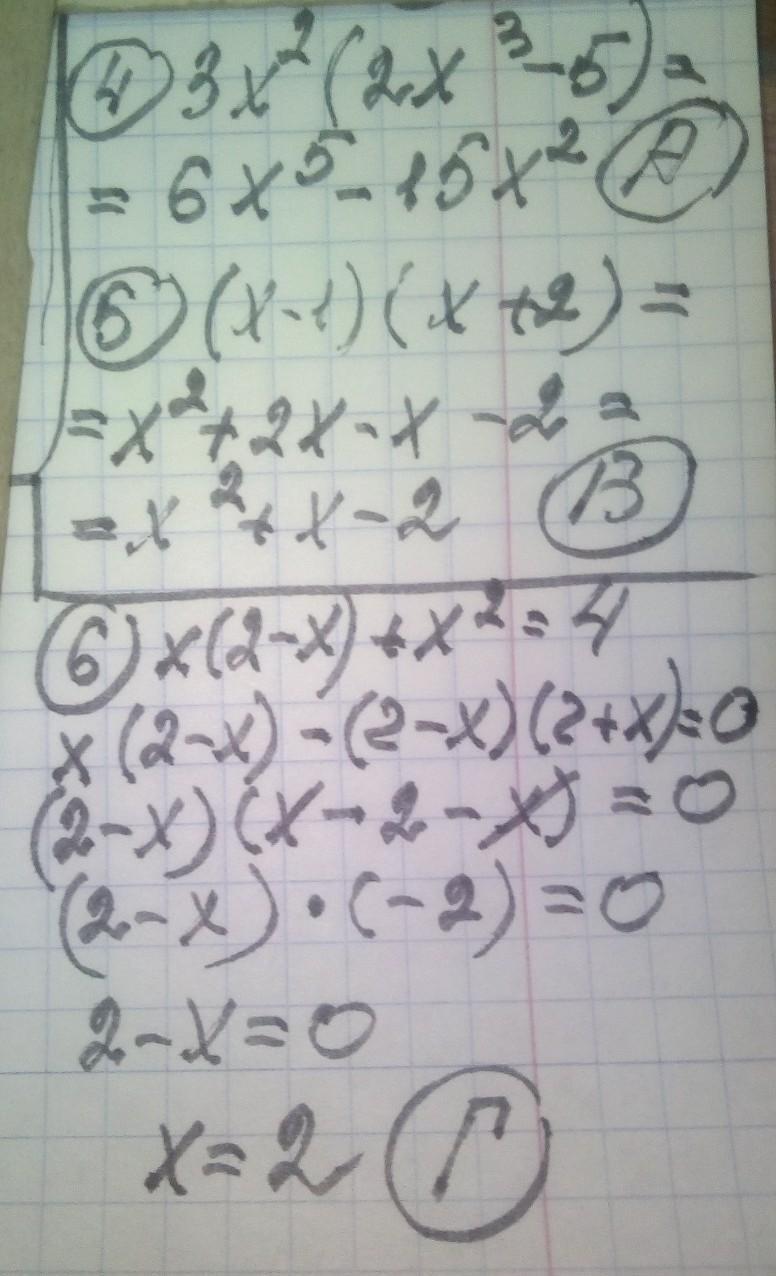 ④ 3x²(2x³-5)=
= 6x⁵-15x² Ⓐ
⑤ (x-1)(x+2)=
=x²+2x-x-2=
=x²+x-2 Ⓑ
⑥ x(2-x)+x²=4
x(2-x)-(2-x)(2+x)=0
(2-x)(x-2-x)=0
(2-x)·(-2)=0
2-x=0
x=2 Г